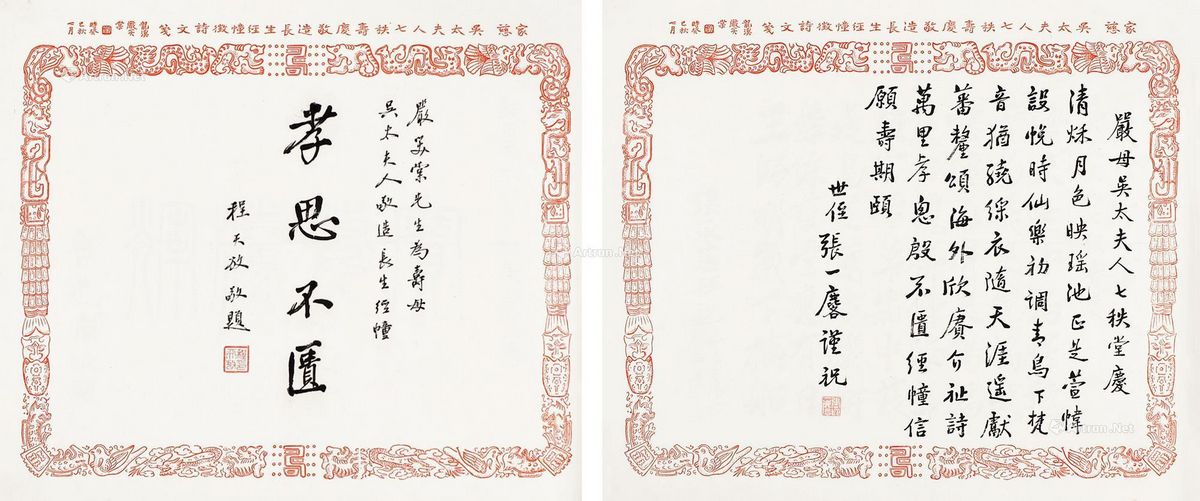 家慈吳太夫人七秩壽慶敬造長生經幢徵詩文箋
嚴笑棠先生為壽母
吳太夫人敬造長生經幢
孝思不匱
程天放敬題
家慈吳太夫人七秩壽慶敬造長生經幢徵詩文箋
嚴母吳太夫人七秩堂慶
清秌月色映瑤池正是萱幃
設帨時仙樂初調青鳥下梵
音猶繞綵衣隨天涯遙獻
蕃釐頌海外欣賡介祉詩
萬里孝恖殷不匱經幢信
願壽期頤
世侄張一麐謹祝
Artron.Net